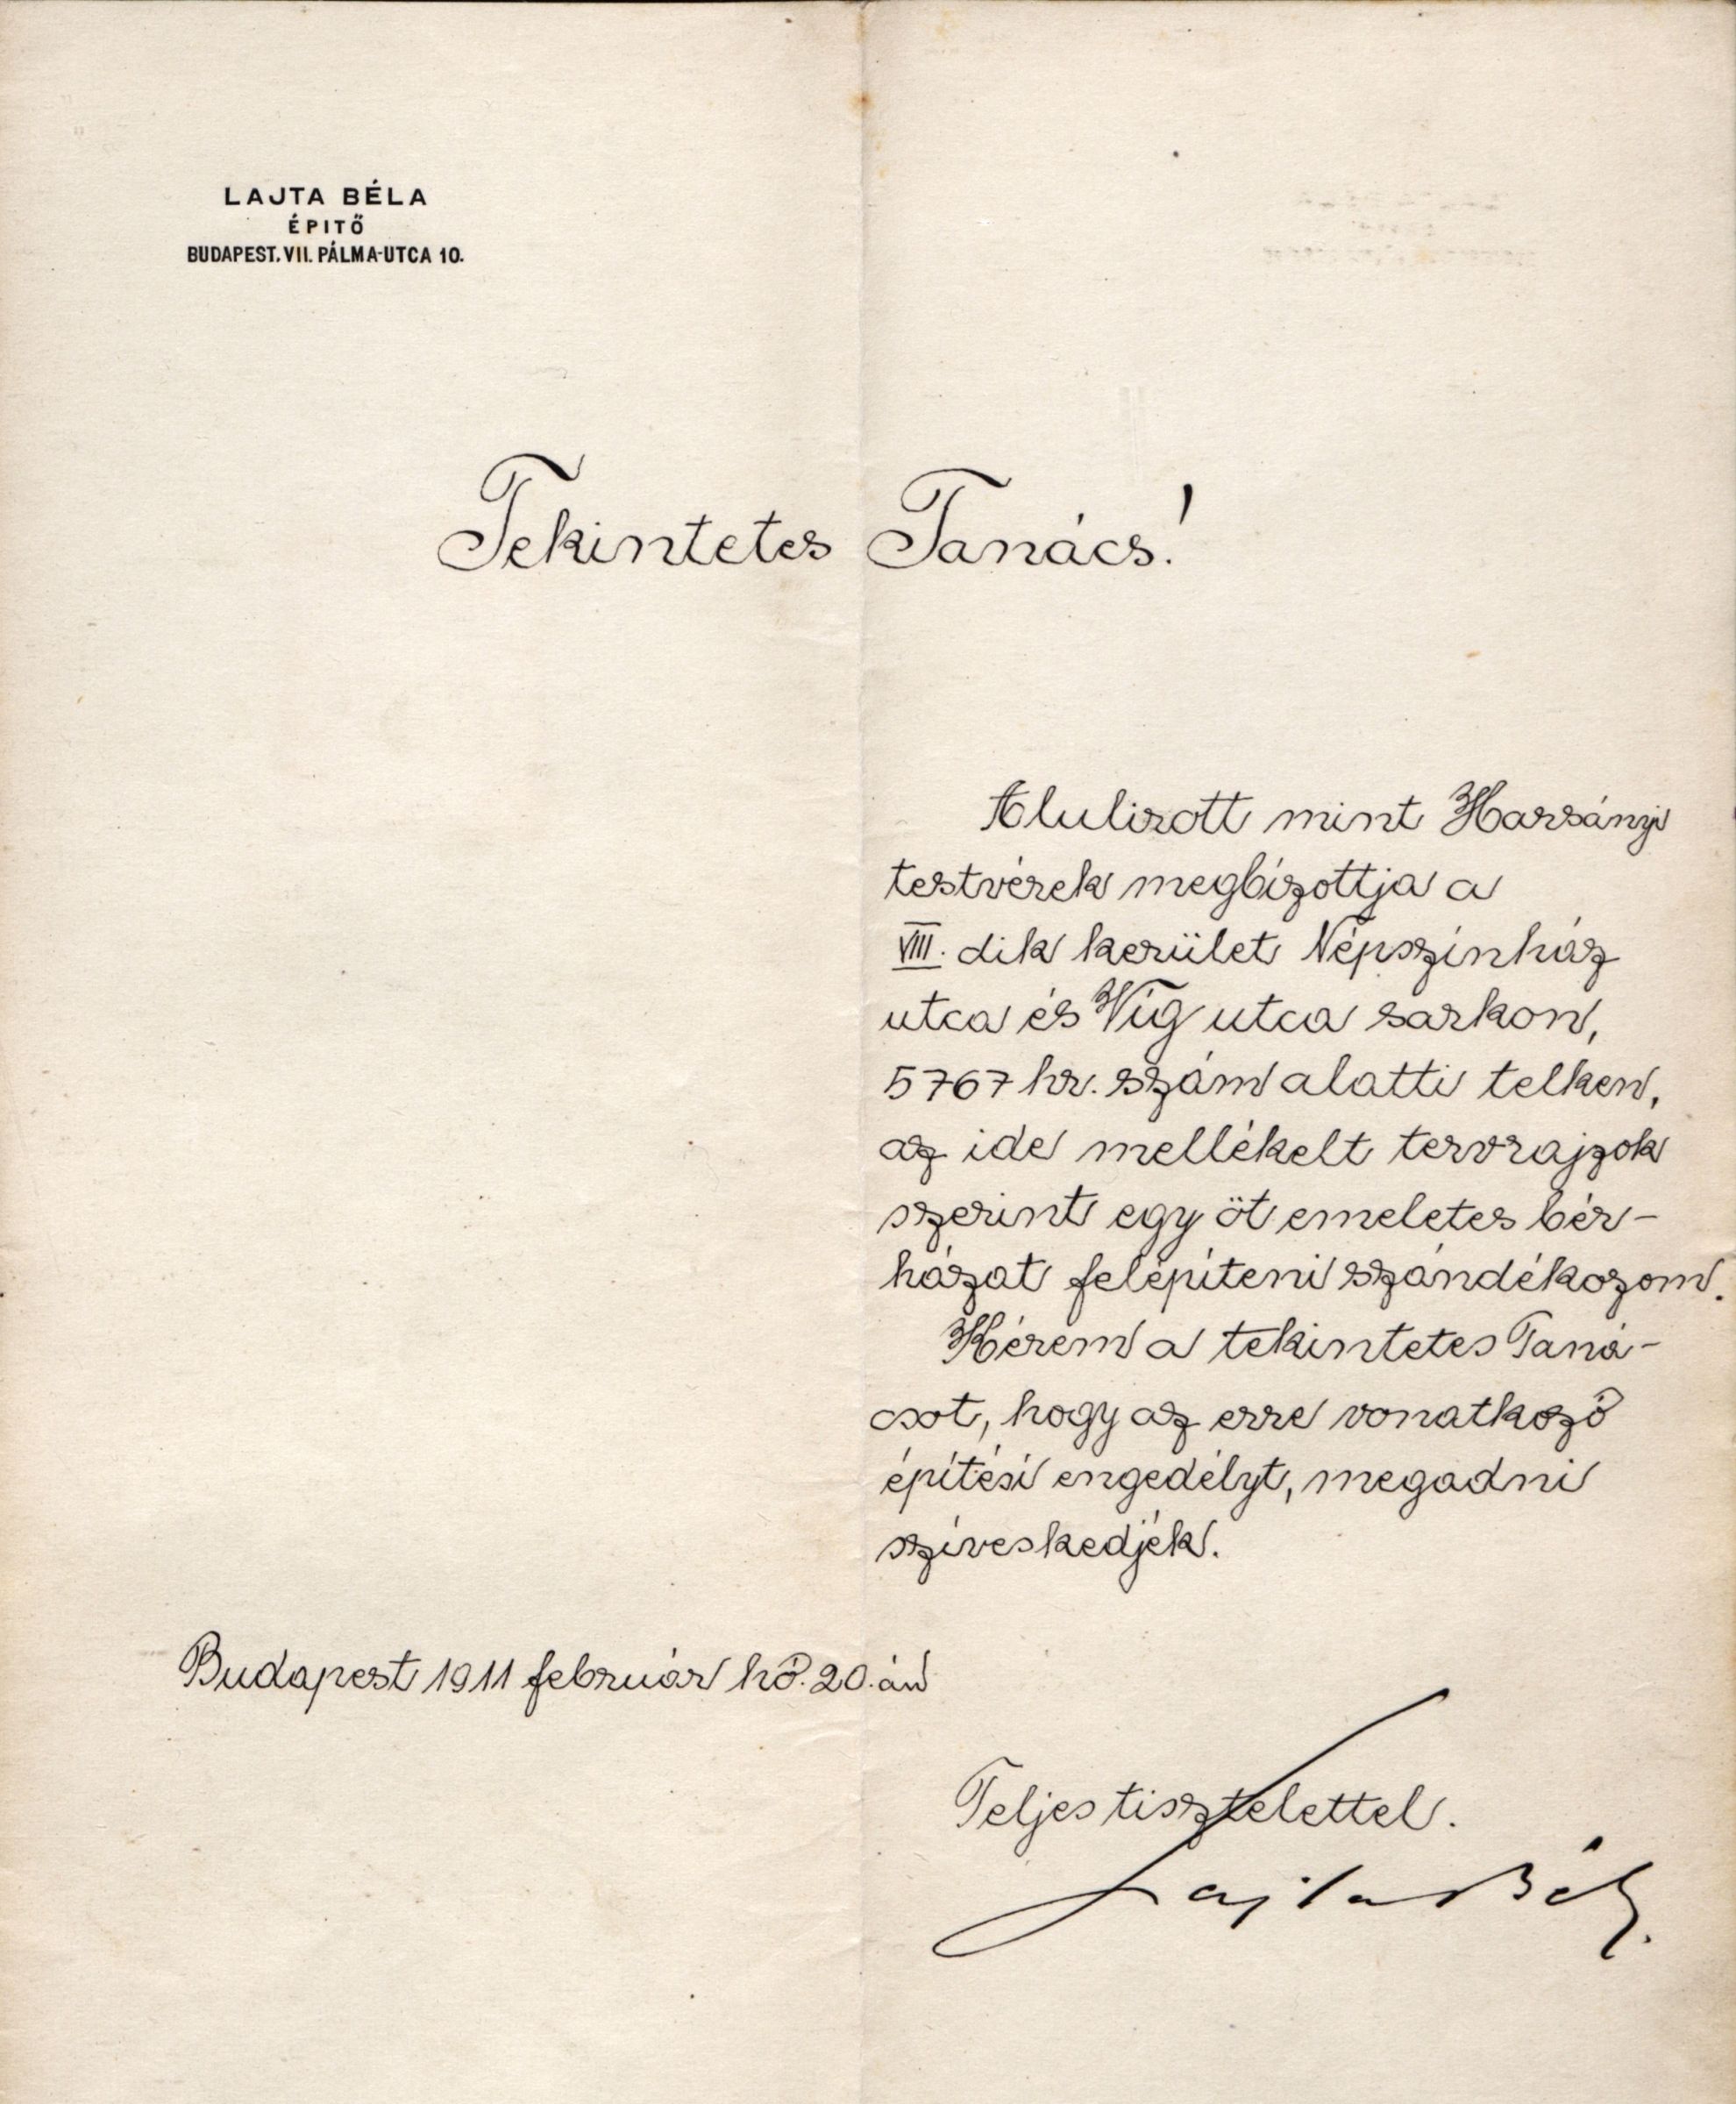 LAJTA BÉLA
ÉPITŐ
BUDAPEST. VII. PÁLMA-UTCA 10.
Tekintetes Tanács!
Alulirott mint Harsányi
testvérek megbízottja a
VIII. dik kerület Népszínház
utca és Víg utca sarkon,
5767 hr. szám alatti telken,
az ide mellékelt tervrajzok
szerint egy öt emeletes bér-
házat felépíteni szándékozom.
Kérem a tekintetes Taná-
csot, hogy az erre vonatkozó
építési engedélyt, megadni
szíveskedjék.
Budapest 1911 február hó. 20. án
Teljes tisztelettel.
Lajta Béla.